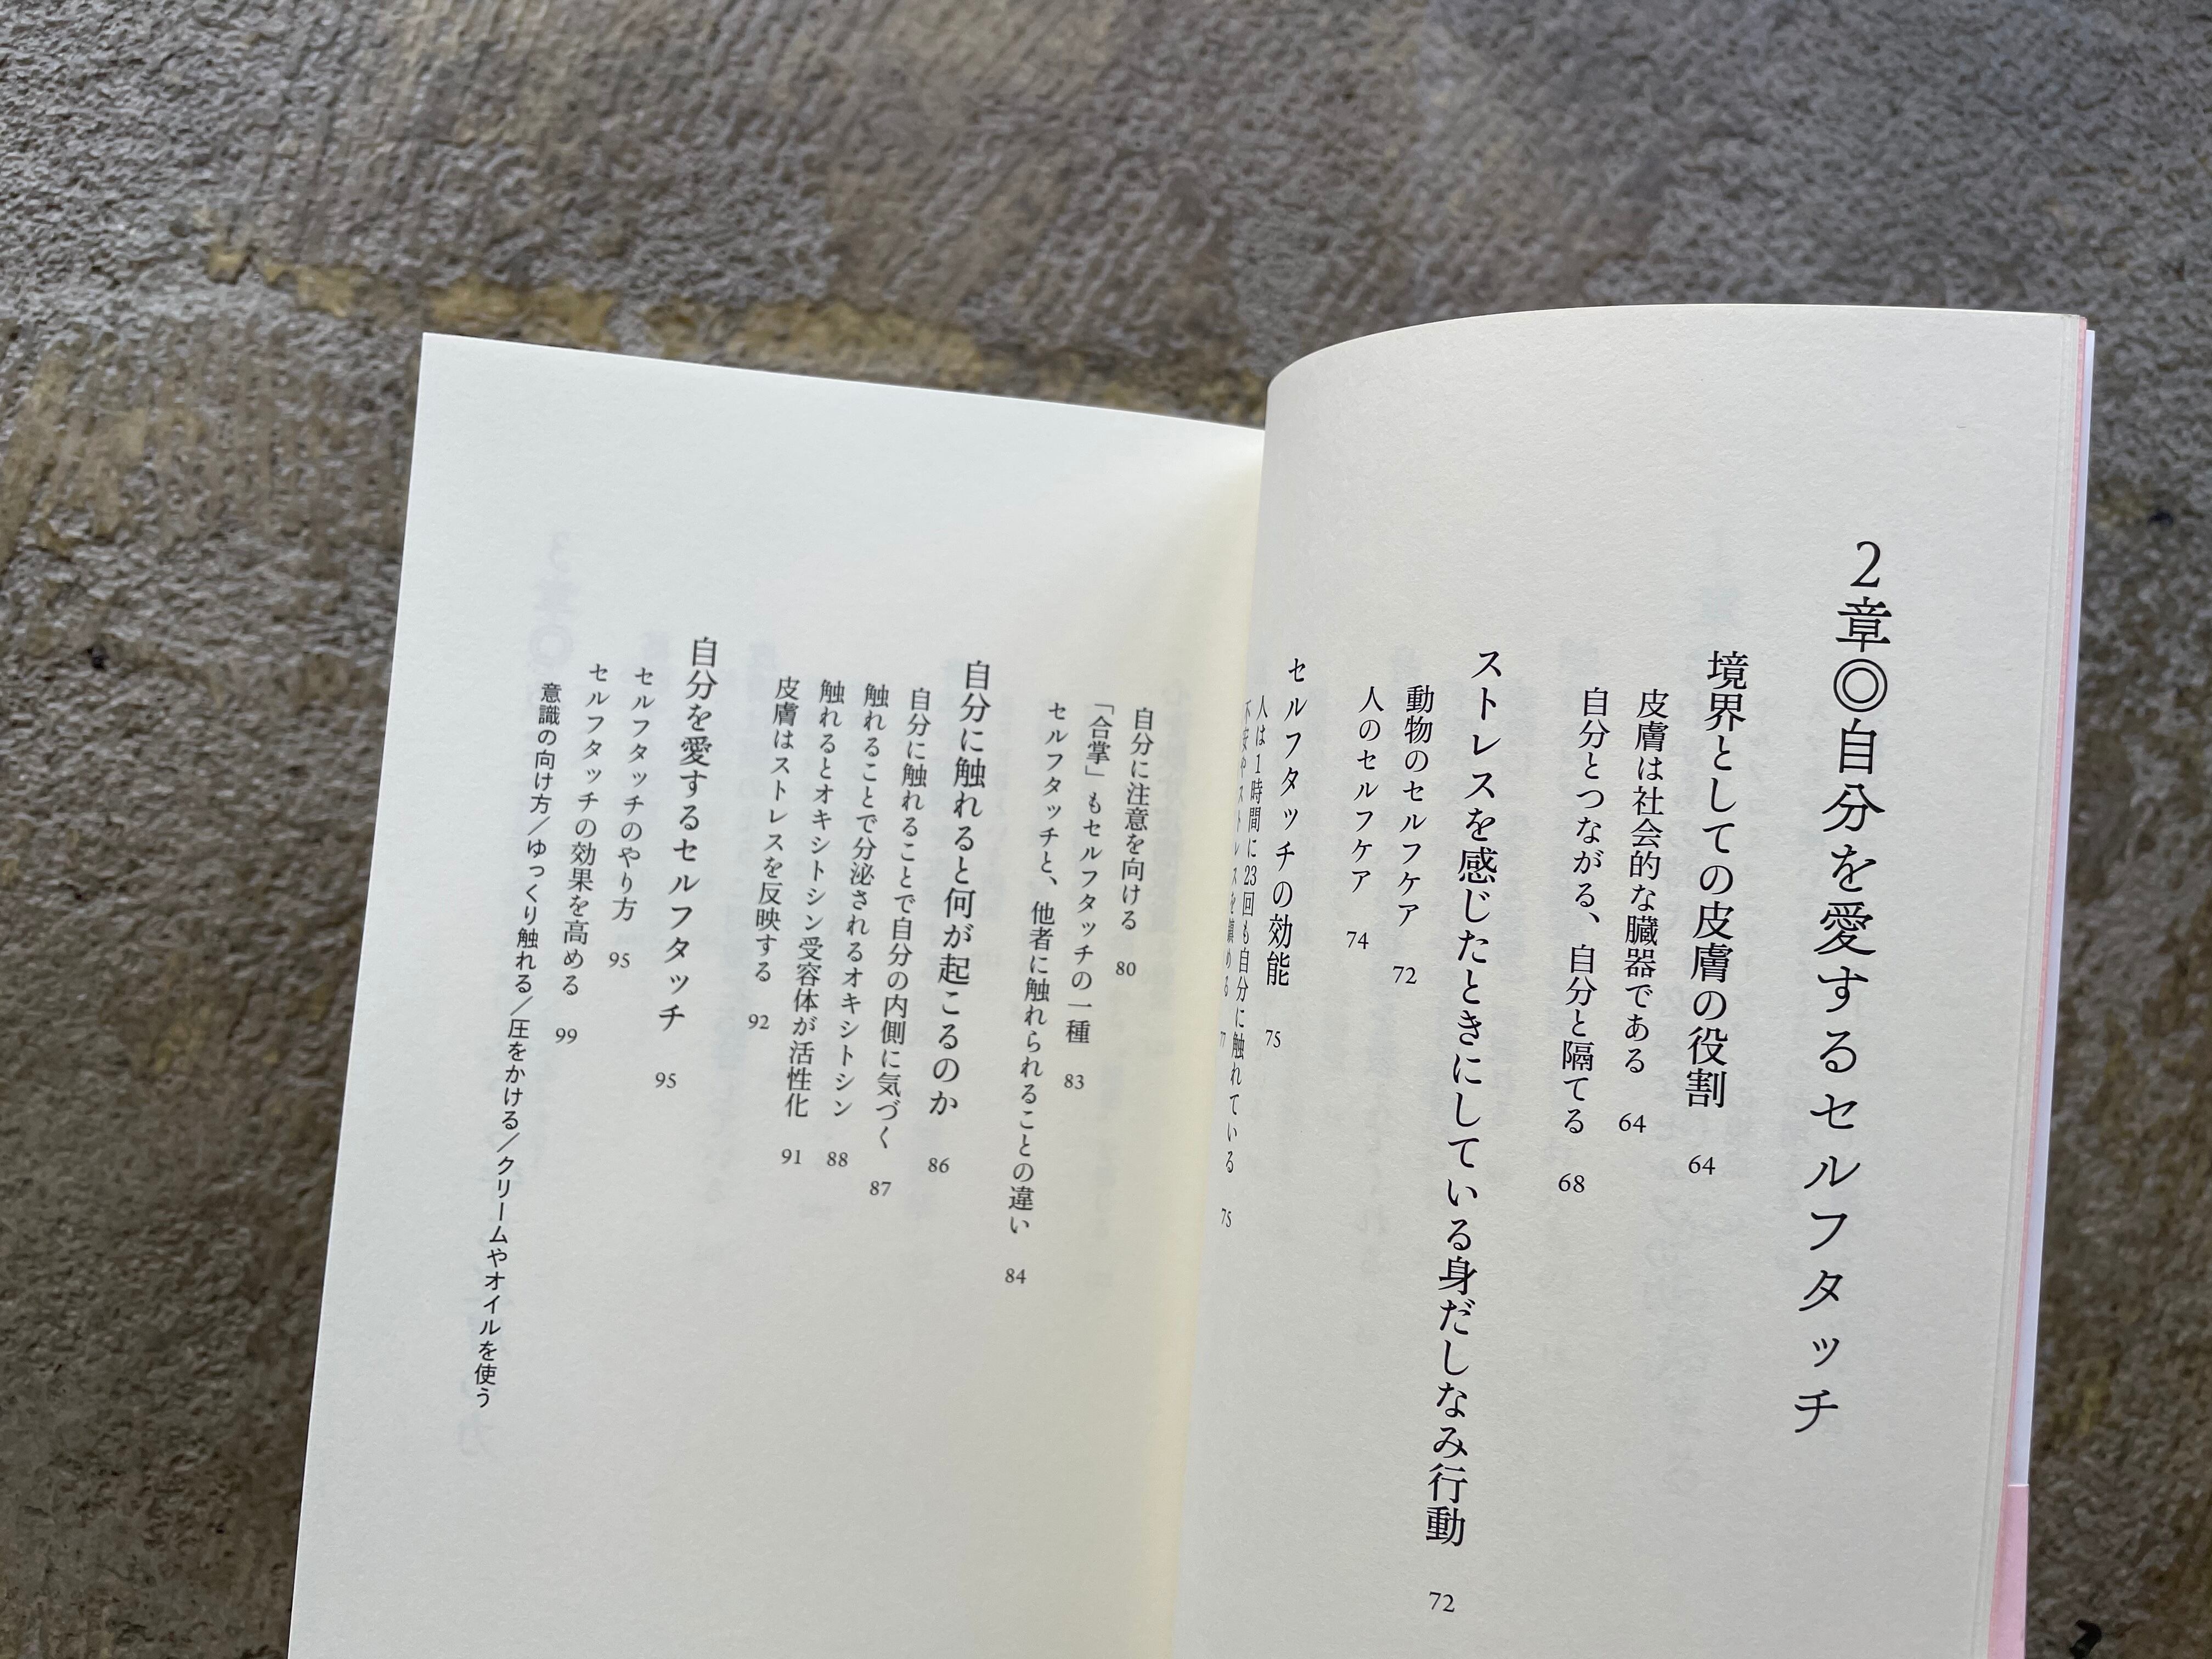 2章◎自分を愛するセルフタッチ
境界としての皮膚の役割 64
皮膚は社会的な臓器である 64
自分とつながる、自分と隔てる 68
ストレスを感じたときにしている身だしなみ行動 72
動物のセルフケア 72
人のセルフケア 74
セルフタッチの効能 75
人は1時間に23回も自分に触れている 75
不安やストレスを鎮める 77
自分に注意を向ける 80
「合掌」もセルフタッチの一種 83
セルフタッチと、他者に触れられることの違い 84
自分に触れると何が起こるのか 86
自分に触れることで自分の内側に気づく 87
触れることで分泌されるオキシトシン 88
触れるとオキシトシン受容体が活性化 91
皮膚はストレスを反映する 92
自分を愛するセルフタッチ 95
セルフタッチのやり方 95
セルフタッチの効果を高める 99
意識の向け方/ゆっくり触れる/圧をかける/クリームやオイルを使う